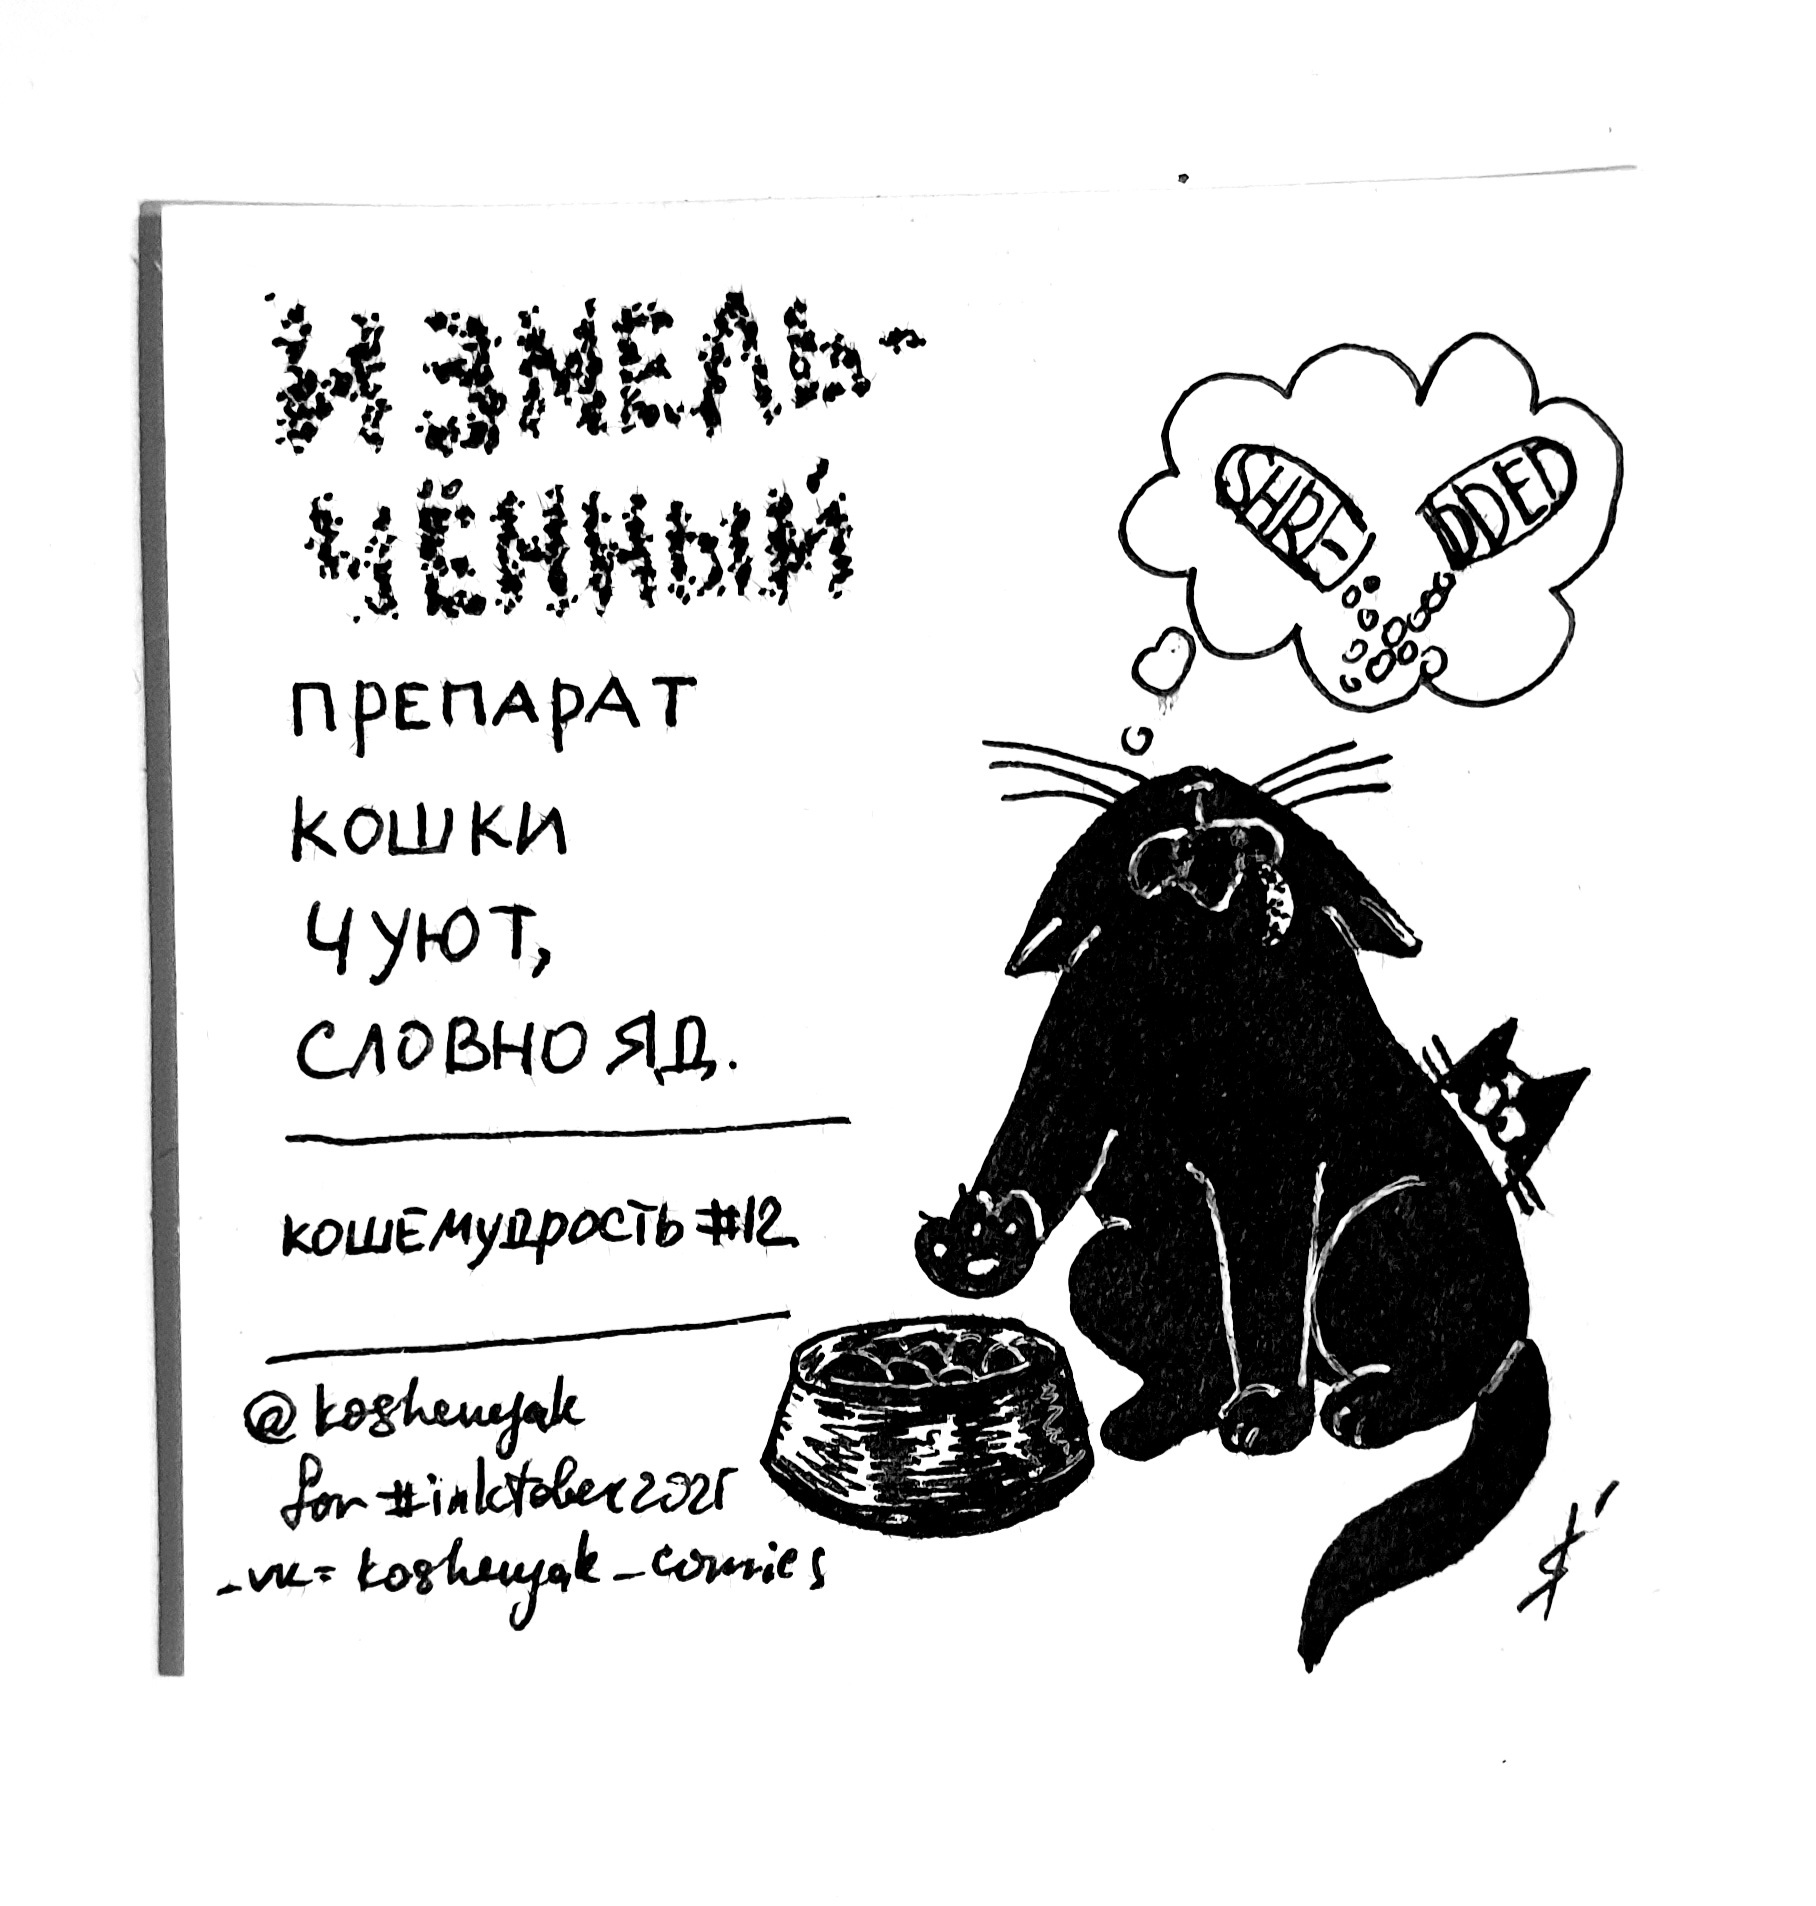 ИЗМЕЛЬ-
ЧЁННЫЙ
ПРЕПАРАТ
КОШКИ
ЧУЮТ,
СЛОВНО ЯД.
КОШЕМУДРОСТЬ #12
@koshenyak
for #inktober2021
vk= koshenyak_comics
SHRE-
DDED